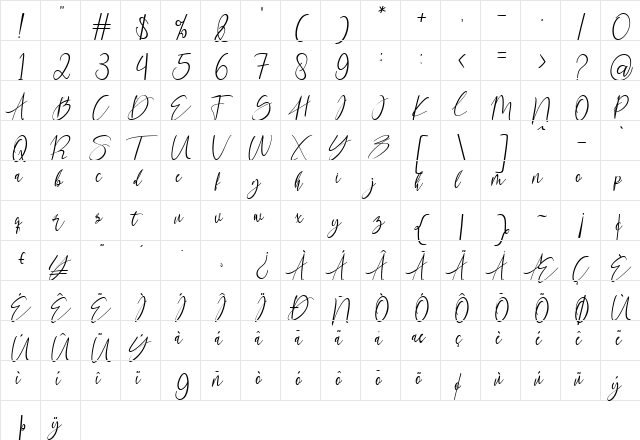 ! " # $ % & ' ( ) * + , – . / 0
1 2 3 4 5 6 7 8 9 : ; < = > ? @
A B C D E F G H I J K L M N O P
Q R S T U V W X Y Z [ \ ] ^ – `
a b c d e f g h i j k l m n o p
q r s t u v w x y z { | } ~ ¡ ¢
£ ¥ ¨ ´ ¸ ¿ À Á Â Ã Ä Å Æ Ç È
É Ê Ë Ì Í Î Ï Ð Ñ Ò Ó Ô Õ Ö Ø Ù
Ú Û Ü Ý à á â ã ä å æ ç è é ê ë
ì í î ï 9 ñ ò ó ô õ ö ¢ ù ú ü ý
þ ÿ